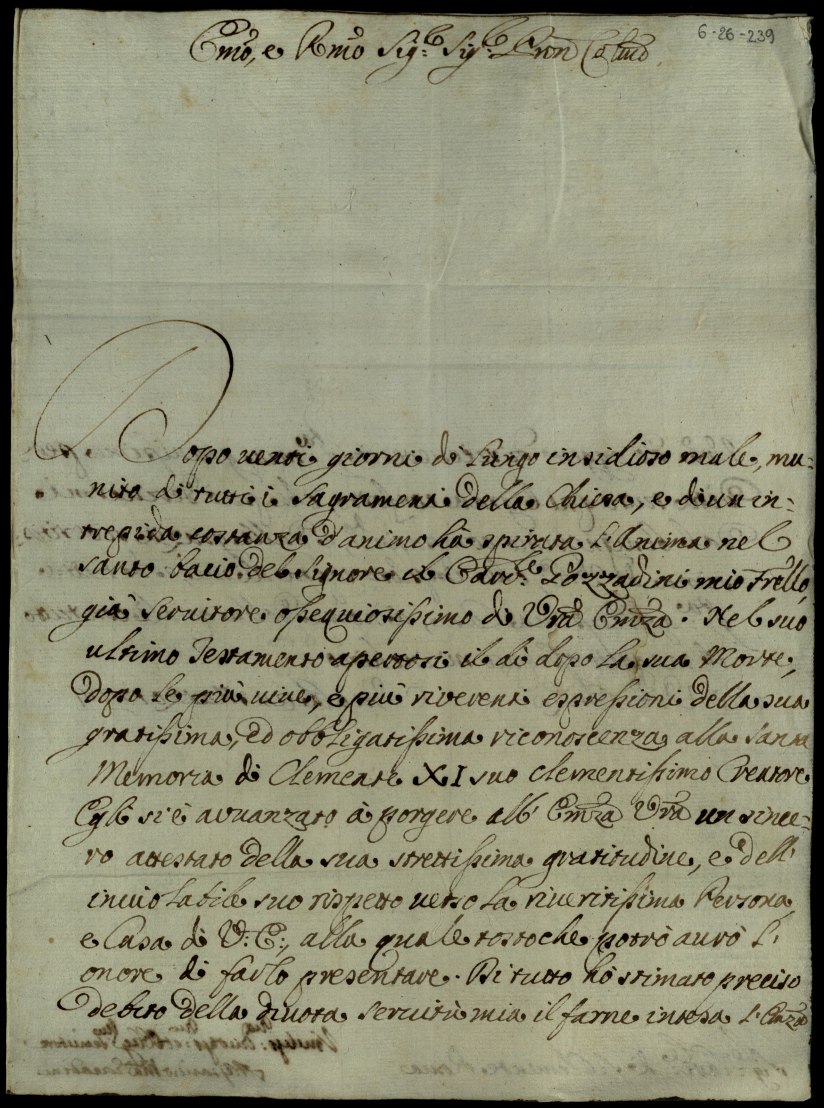 6-26-239
Emo, e Rmo Sig.r Sig.r Pron Colmo
Dopo uenti giorni di lungo insidioso male, mu-
nito di tutti i Sagramenti della Chiesa, e di un in-
trepida costanza d'animo hà spirata l'Anima nel
santo bacio del Signore il Card.le Pozzadini mio Frello
già seruitore ossequiosissimo di Vra Emza. Nel suo
ultimo Testamento apertosi il dì dopo la sua Morte,
dopo le più uiue, e più riuerenti espressioni della sua
gratissima, ed obbligatissima riconoscenza alla santa
Memoria di Clemente XI suo clementissimo Creatore
Egli si è auuanzato à porgere all' Emza Vra un since-
ro attestato della sua strettissima gratitudine, e dell'
inuiolabile suo rispetto uerso la riueritissima Persona,
e Casa di V: E:, alla quale tosto che potrò aurò l'
onore di farlo presentare. Di tutto hò stimato preciso
debito della diuota seruitù mia il farne intesa l'Emza